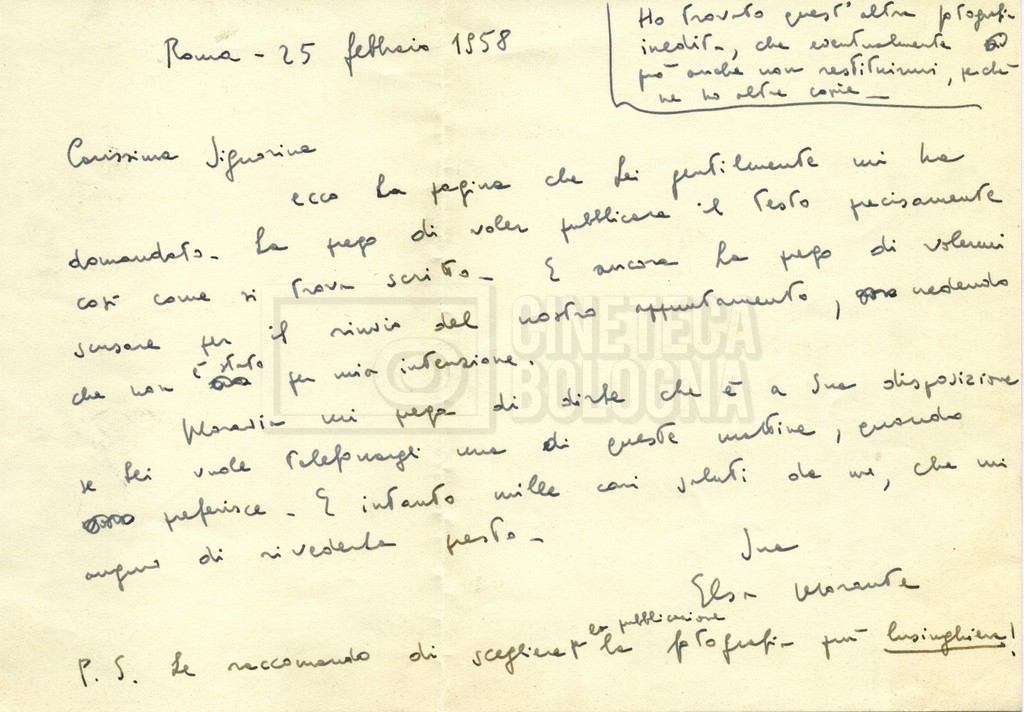 Ho trovato quest'altra fotografia
inedita, che eventualmente
può anche non restituirmi, perchè
ne ho altre copie —
Roma - 25 febbraio 1958
Carissima Signorina
ecco la pagina che Lei gentilmente mi ha
domandato. La prego di voler pubblicare il testo precisamente
così come si trova scritto. E ancora la prego di volermi
scusare per il rinvio del nostro appuntamento, vedendo
che non è stato per mia intenzione.
Moravia mi prega di dirle che è a Sua disposizione
se Lei vuole telefonargli una di queste mattine, quando
preferisce. E intanto mille cari saluti da me, che mi
auguro di rivederla presto.
Sua
Elsa Morante
P. S. Le raccomando di scegliere per la pubblicazione la fotografia più lusinghiera!
CINETECA
BOLOGNA